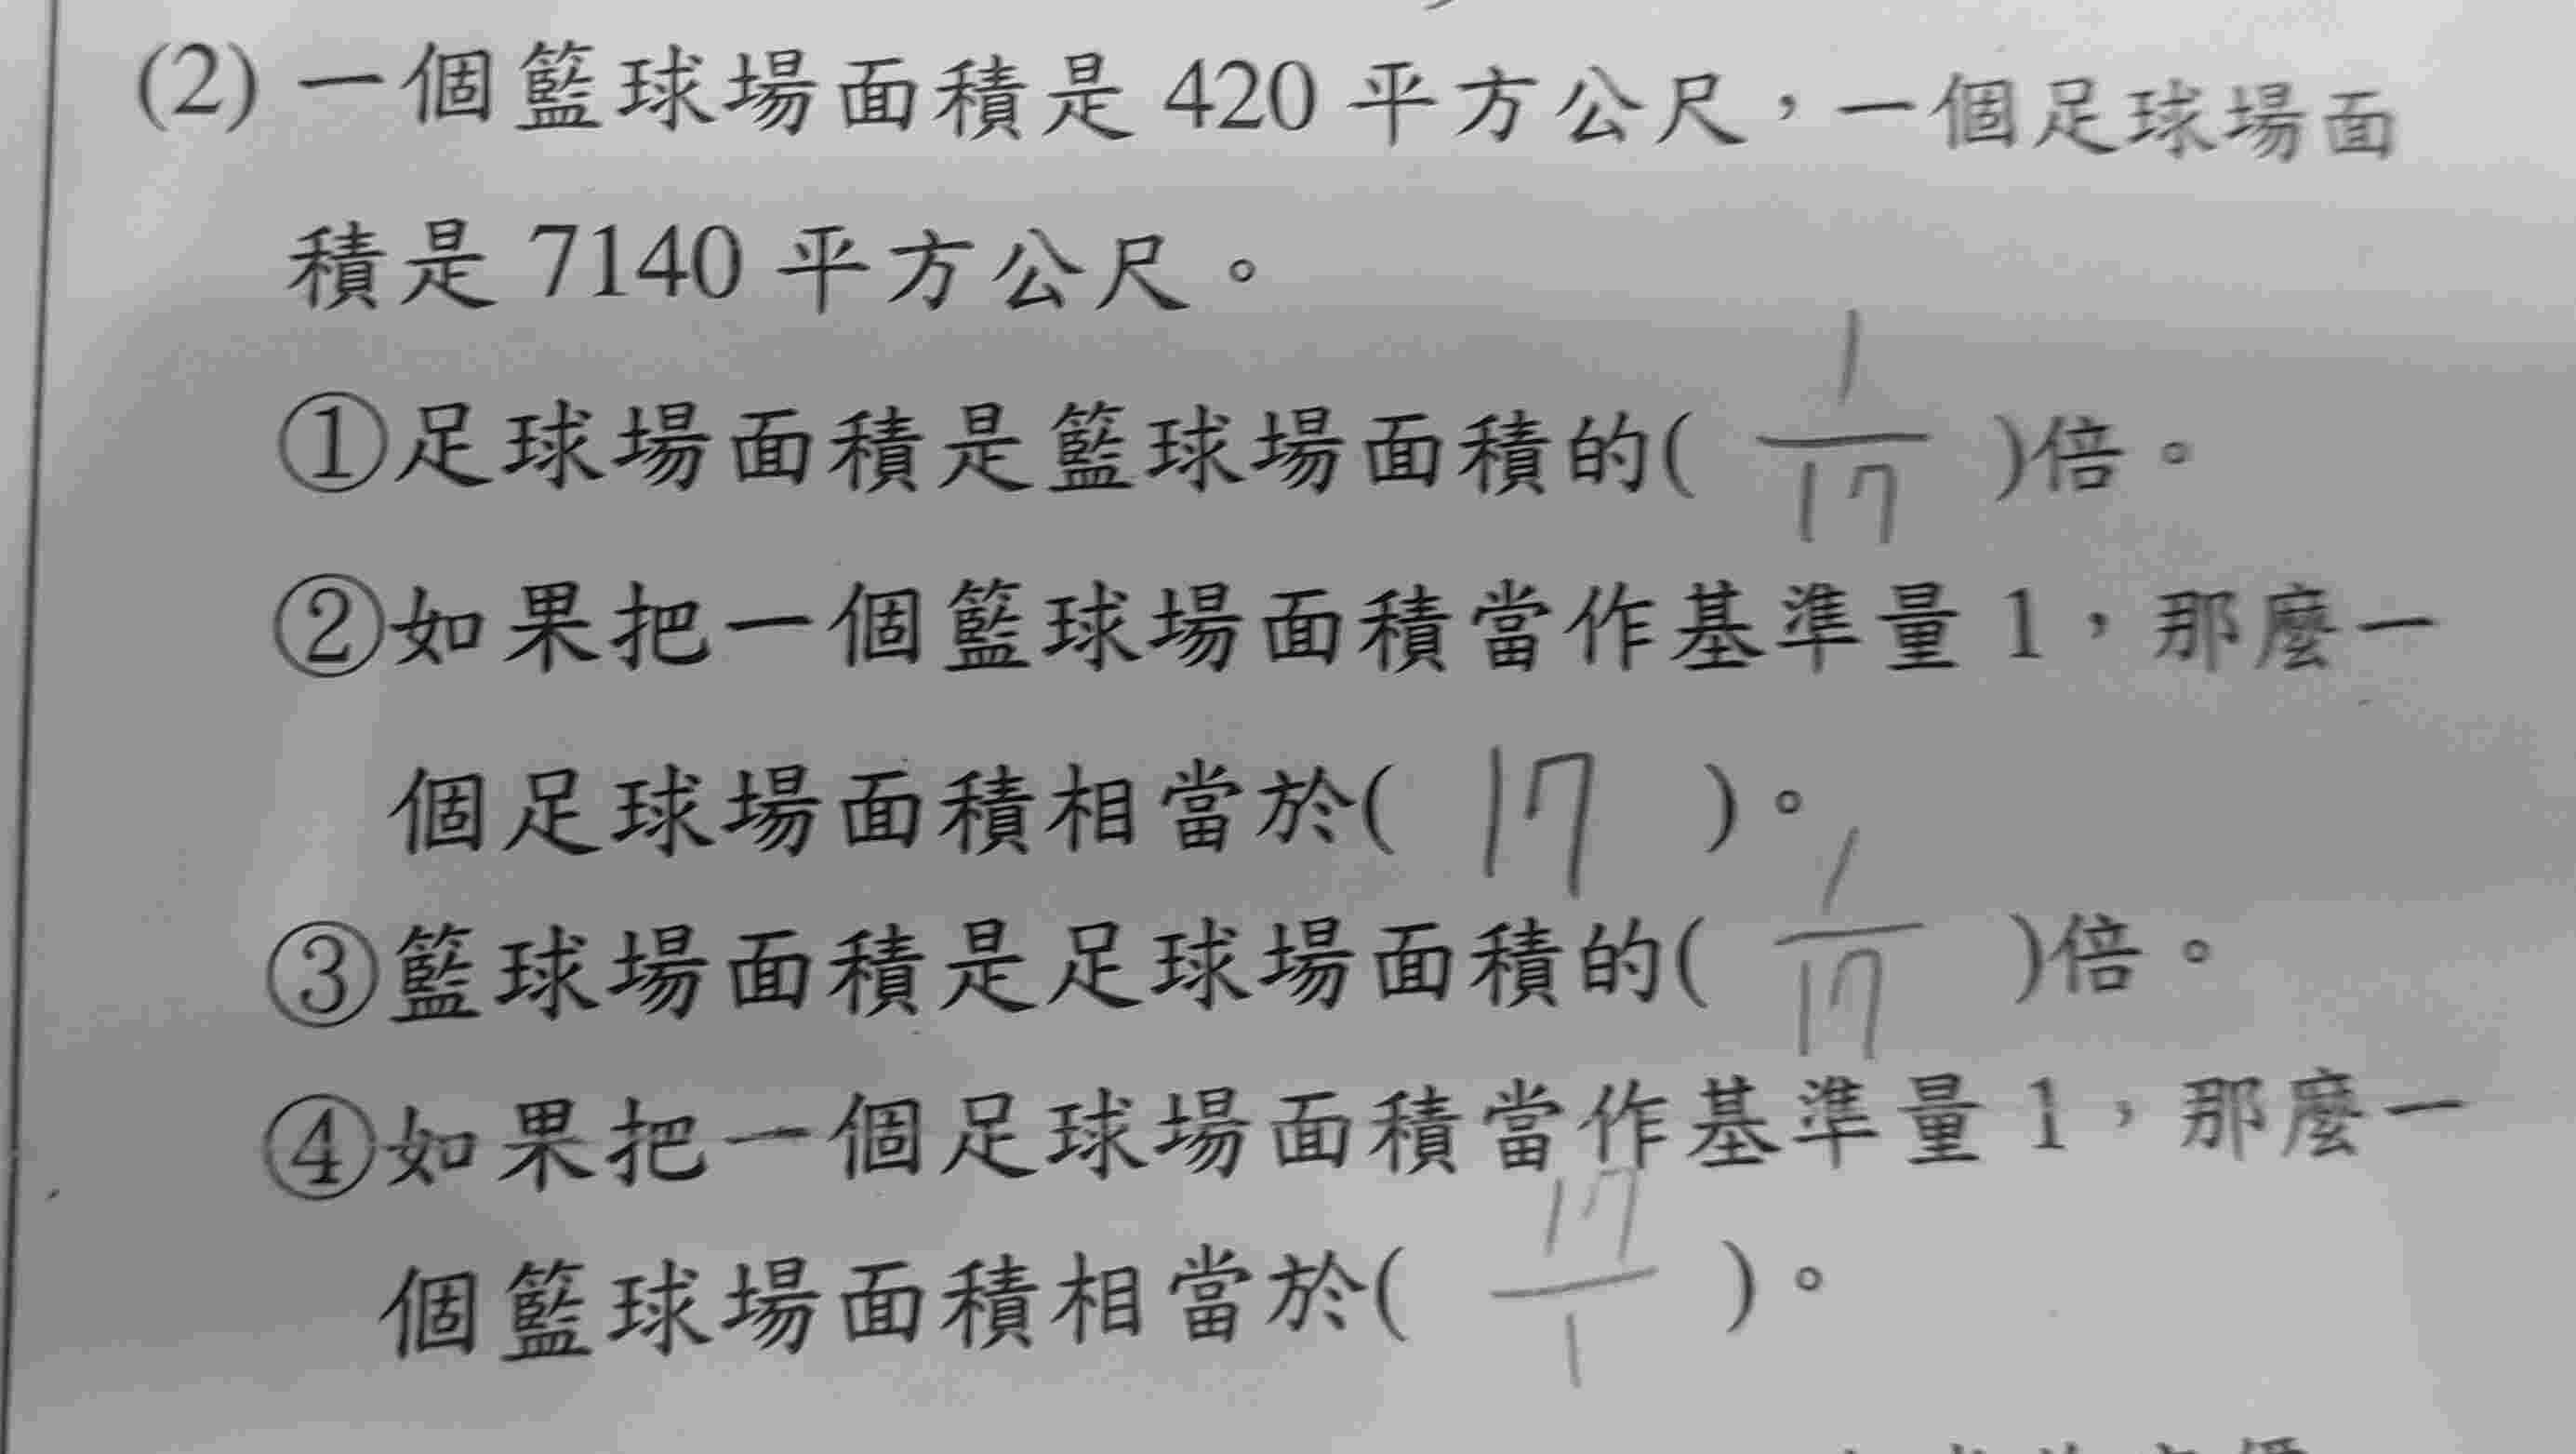 (2) 一個籃球場面積是 420 平方公尺，一個足球場面
積是 7140 平方公尺。
①足球場面積是籃球場面積的( 1/17 )倍。
②如果把一個籃球場面積當作基準量 1，那麼一
個足球場面積相當於( 17 )。
③籃球場面積是足球場面積的( 1/17 )倍。
④如果把一個足球場面積當作基準量 1，那麼一
個籃球場面積相當於( 17/1 )。